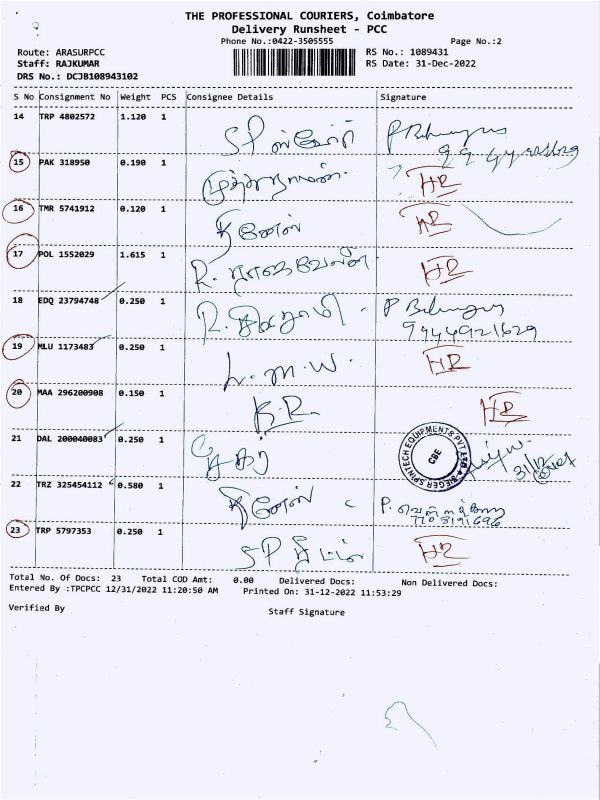 THE PROFESSIONAL COURIERS, Coimbatore
Delivery Runsheet - PCC
Phone No.:0422-3505555 Page No.:2
Route: ARASURPCC RS No.: 1089431
Staff: RAJKUMAR RS Date: 31-Dec-2022
DRS No.: DCJB108943102
S No Consignment No Weight PCS Consignee Details Signature
14 TRP 4802572 1.120 1
SP
15 PAK 318950 0.190 1
HR
16 TMR 5741912 0.120 1
தினேஷ் HR
17 POL 1552029 1.615 1
R. HR
18 EDQ 23794748 0.250 1
R.
9444921629
19 MLU 1173483 0.250 1
L.M.W. HR
20 MAA 296200908 0.150 1
K.R. HR
21 DAL 200040083 0.250 1
RIEGER SPINTECH EQUIPMENTS PVT LTD CBE
31/12
22 TRZ 325454112 0.580 1
தினேஷ் P.
23 TRP 5797353 0.250 1
SP HR
Total No. Of Docs: 23 Total COD Amt: 0.00 Delivered Docs: Non Delivered Docs:
Entered By :TPCPCC 12/31/2022 11:20:50 AM Printed On: 31-12-2022 11:53:29
Verified By Staff Signature